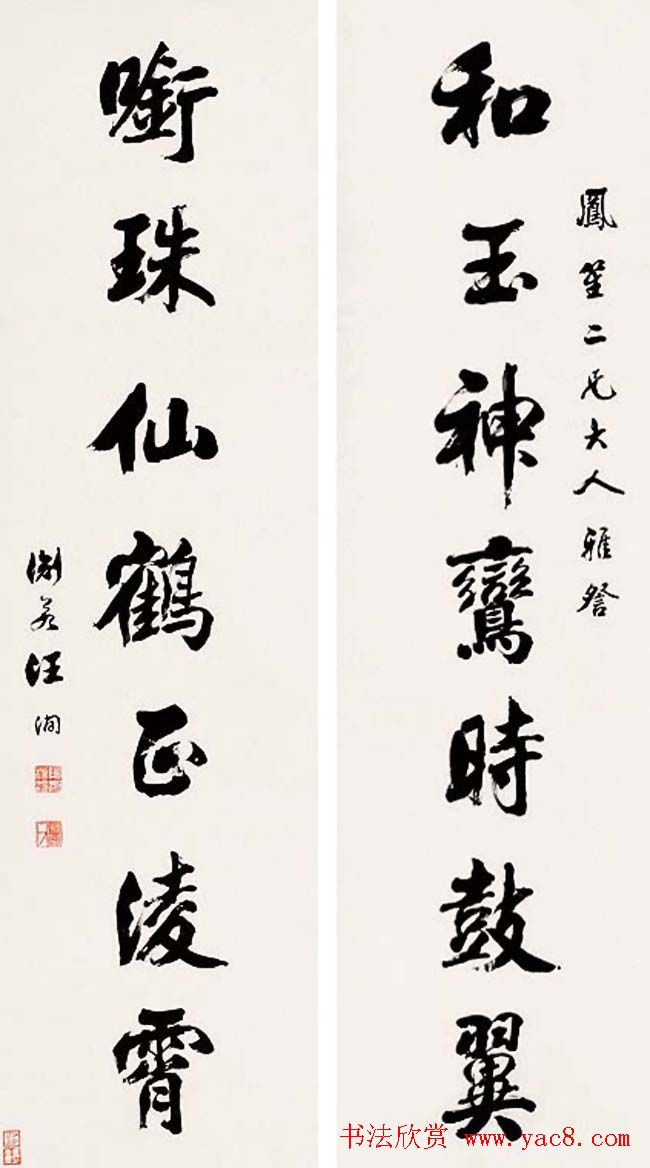 和玉神鸞時鼓翼
鳳笙二兄大人雅詧
㘅珠仙鶴正淩霄
淵若汪洵
书法欣赏 www.yac8.com